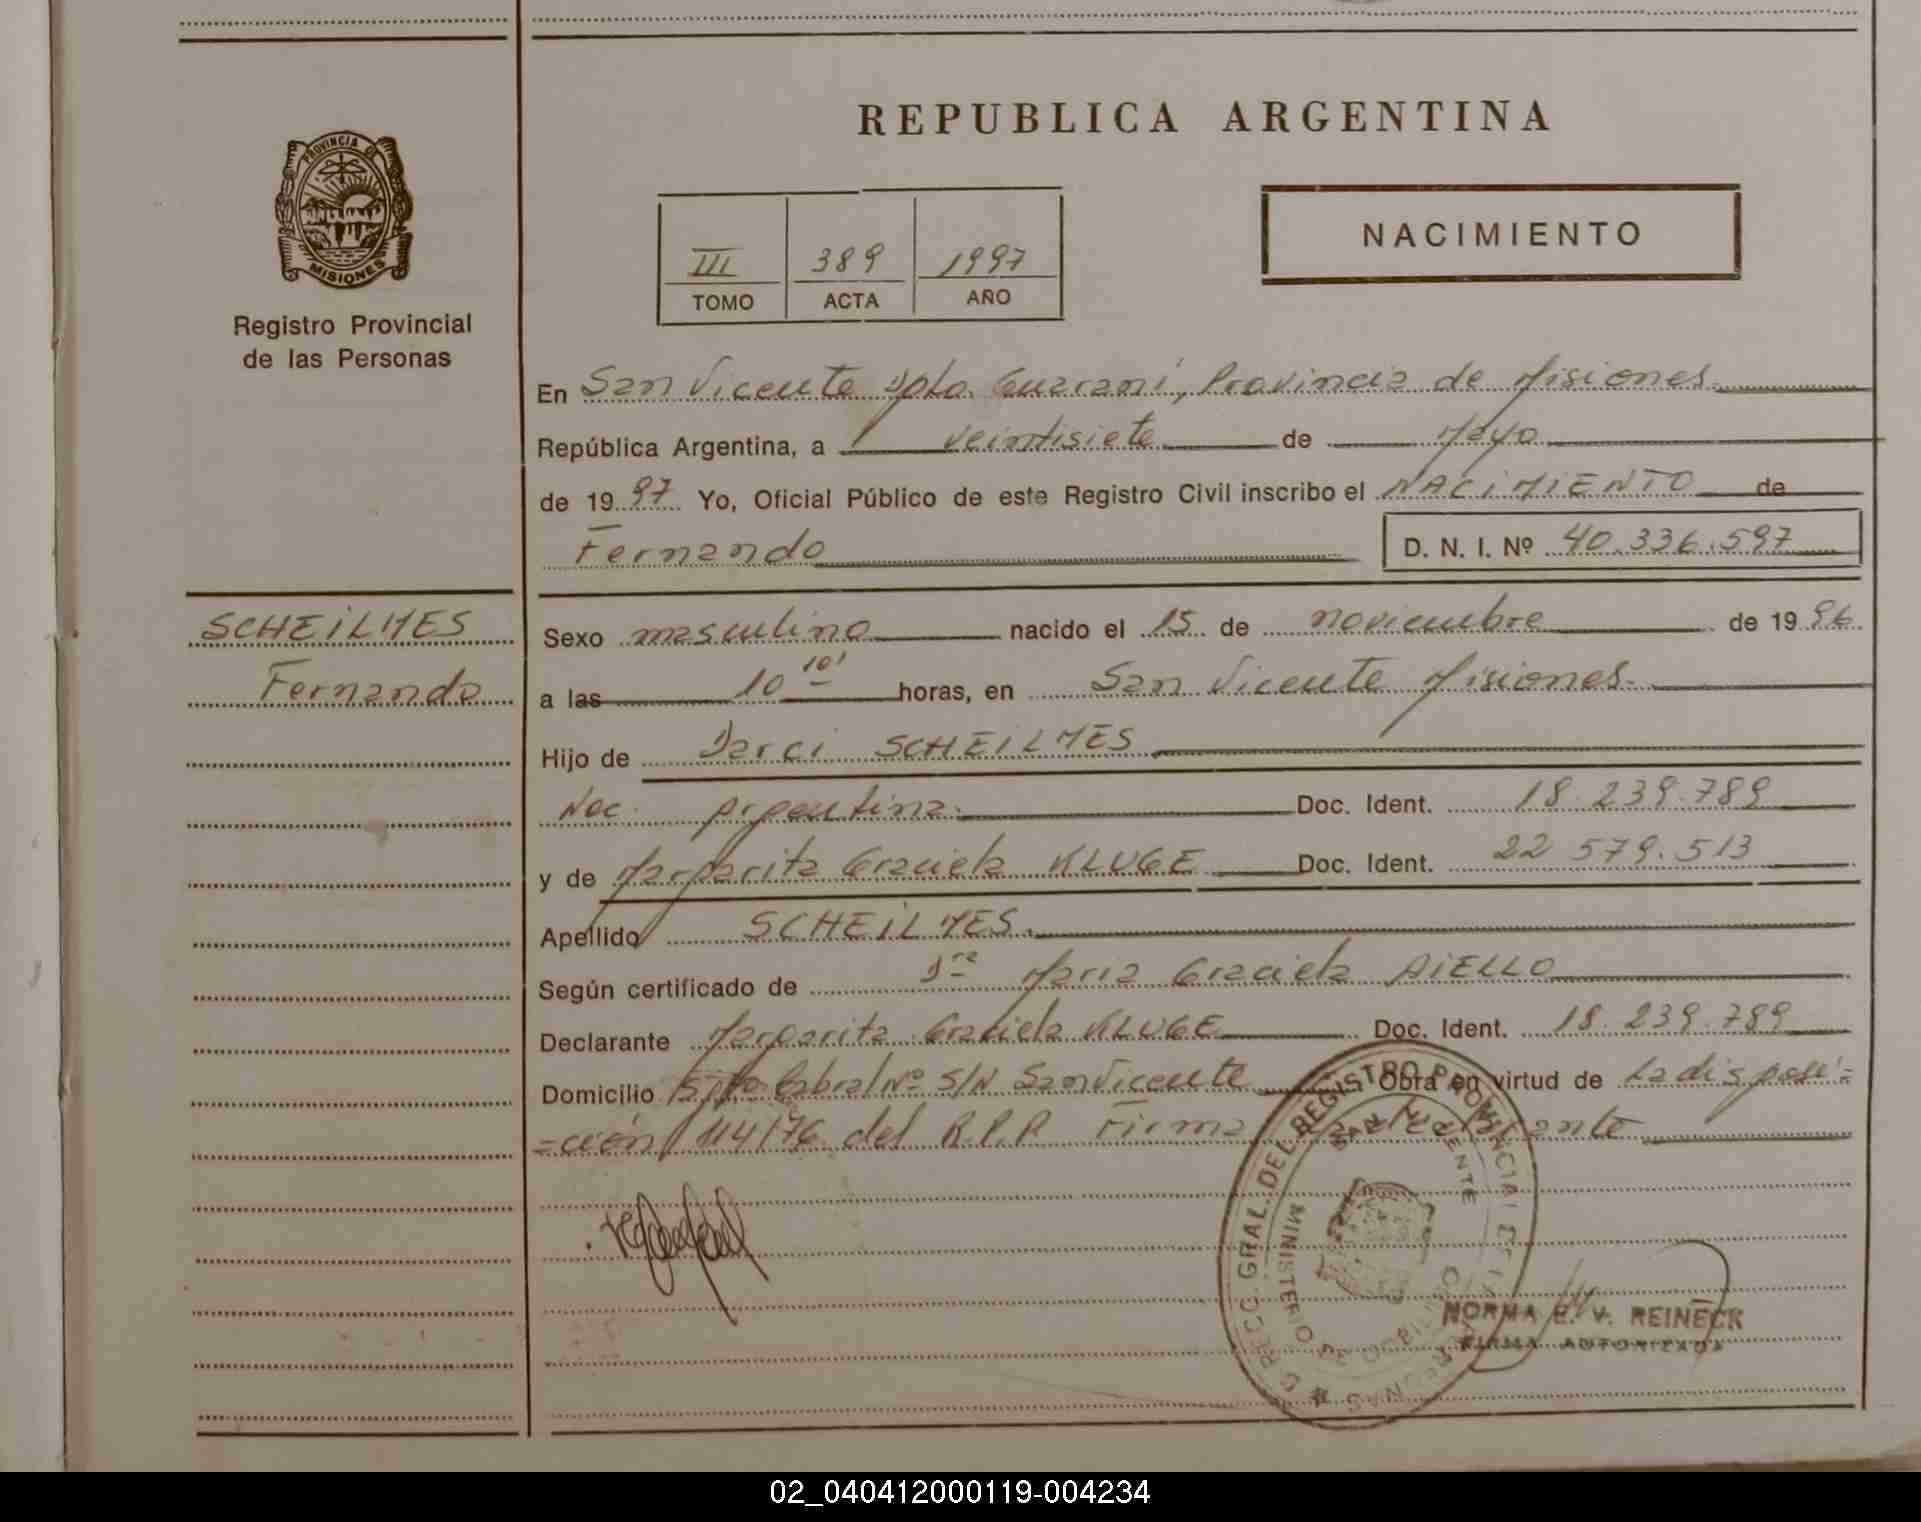 REPUBLICA ARGENTINA
PROVINCIA DE
MISIONES
Registro Provincial
de las Personas
III 389 1997
TOMO ACTA AÑO
NACIMIENTO
En San Vicente Dpto. Guaraní, Provincia de Misiones.
República Argentina, a veintisiete de Mayo
de 1997 Yo, Oficial Público de este Registro Civil inscribo el NACIMIENTO de
Fernando D. N. I. Nº 40.336.597
SCHEILMES
Fernando
Sexo masculino nacido el 15 de noviembre de 1996.
a las 10 10' horas, en San Vicente Misiones.
Hijo de Darci SCHEILMES
Nac. Argentina. Doc. Ident. 18.239.789
y de Margarita Graciela KLUGE Doc. Ident. 22 579.513
Apellido SCHEILMES.
Según certificado de Dra Maria Graciela AIELLO
Declarante Margarita Graciela KLUGE Doc. Ident. 18.239.789
Domicilio Sgto. Cabral Nº S/N San Vicente Obra en virtud de La disposi=
=ción 114/76 del R.P.P. Firma
DIRECC. GRAL. DEL REGISTRO PROVINCIAL
SAN VICENTE
MINISTERIO DE GOBIERNO
NORMA E. V. REINECK
FIRMA AUTORIZADA
02_040412000119-004234